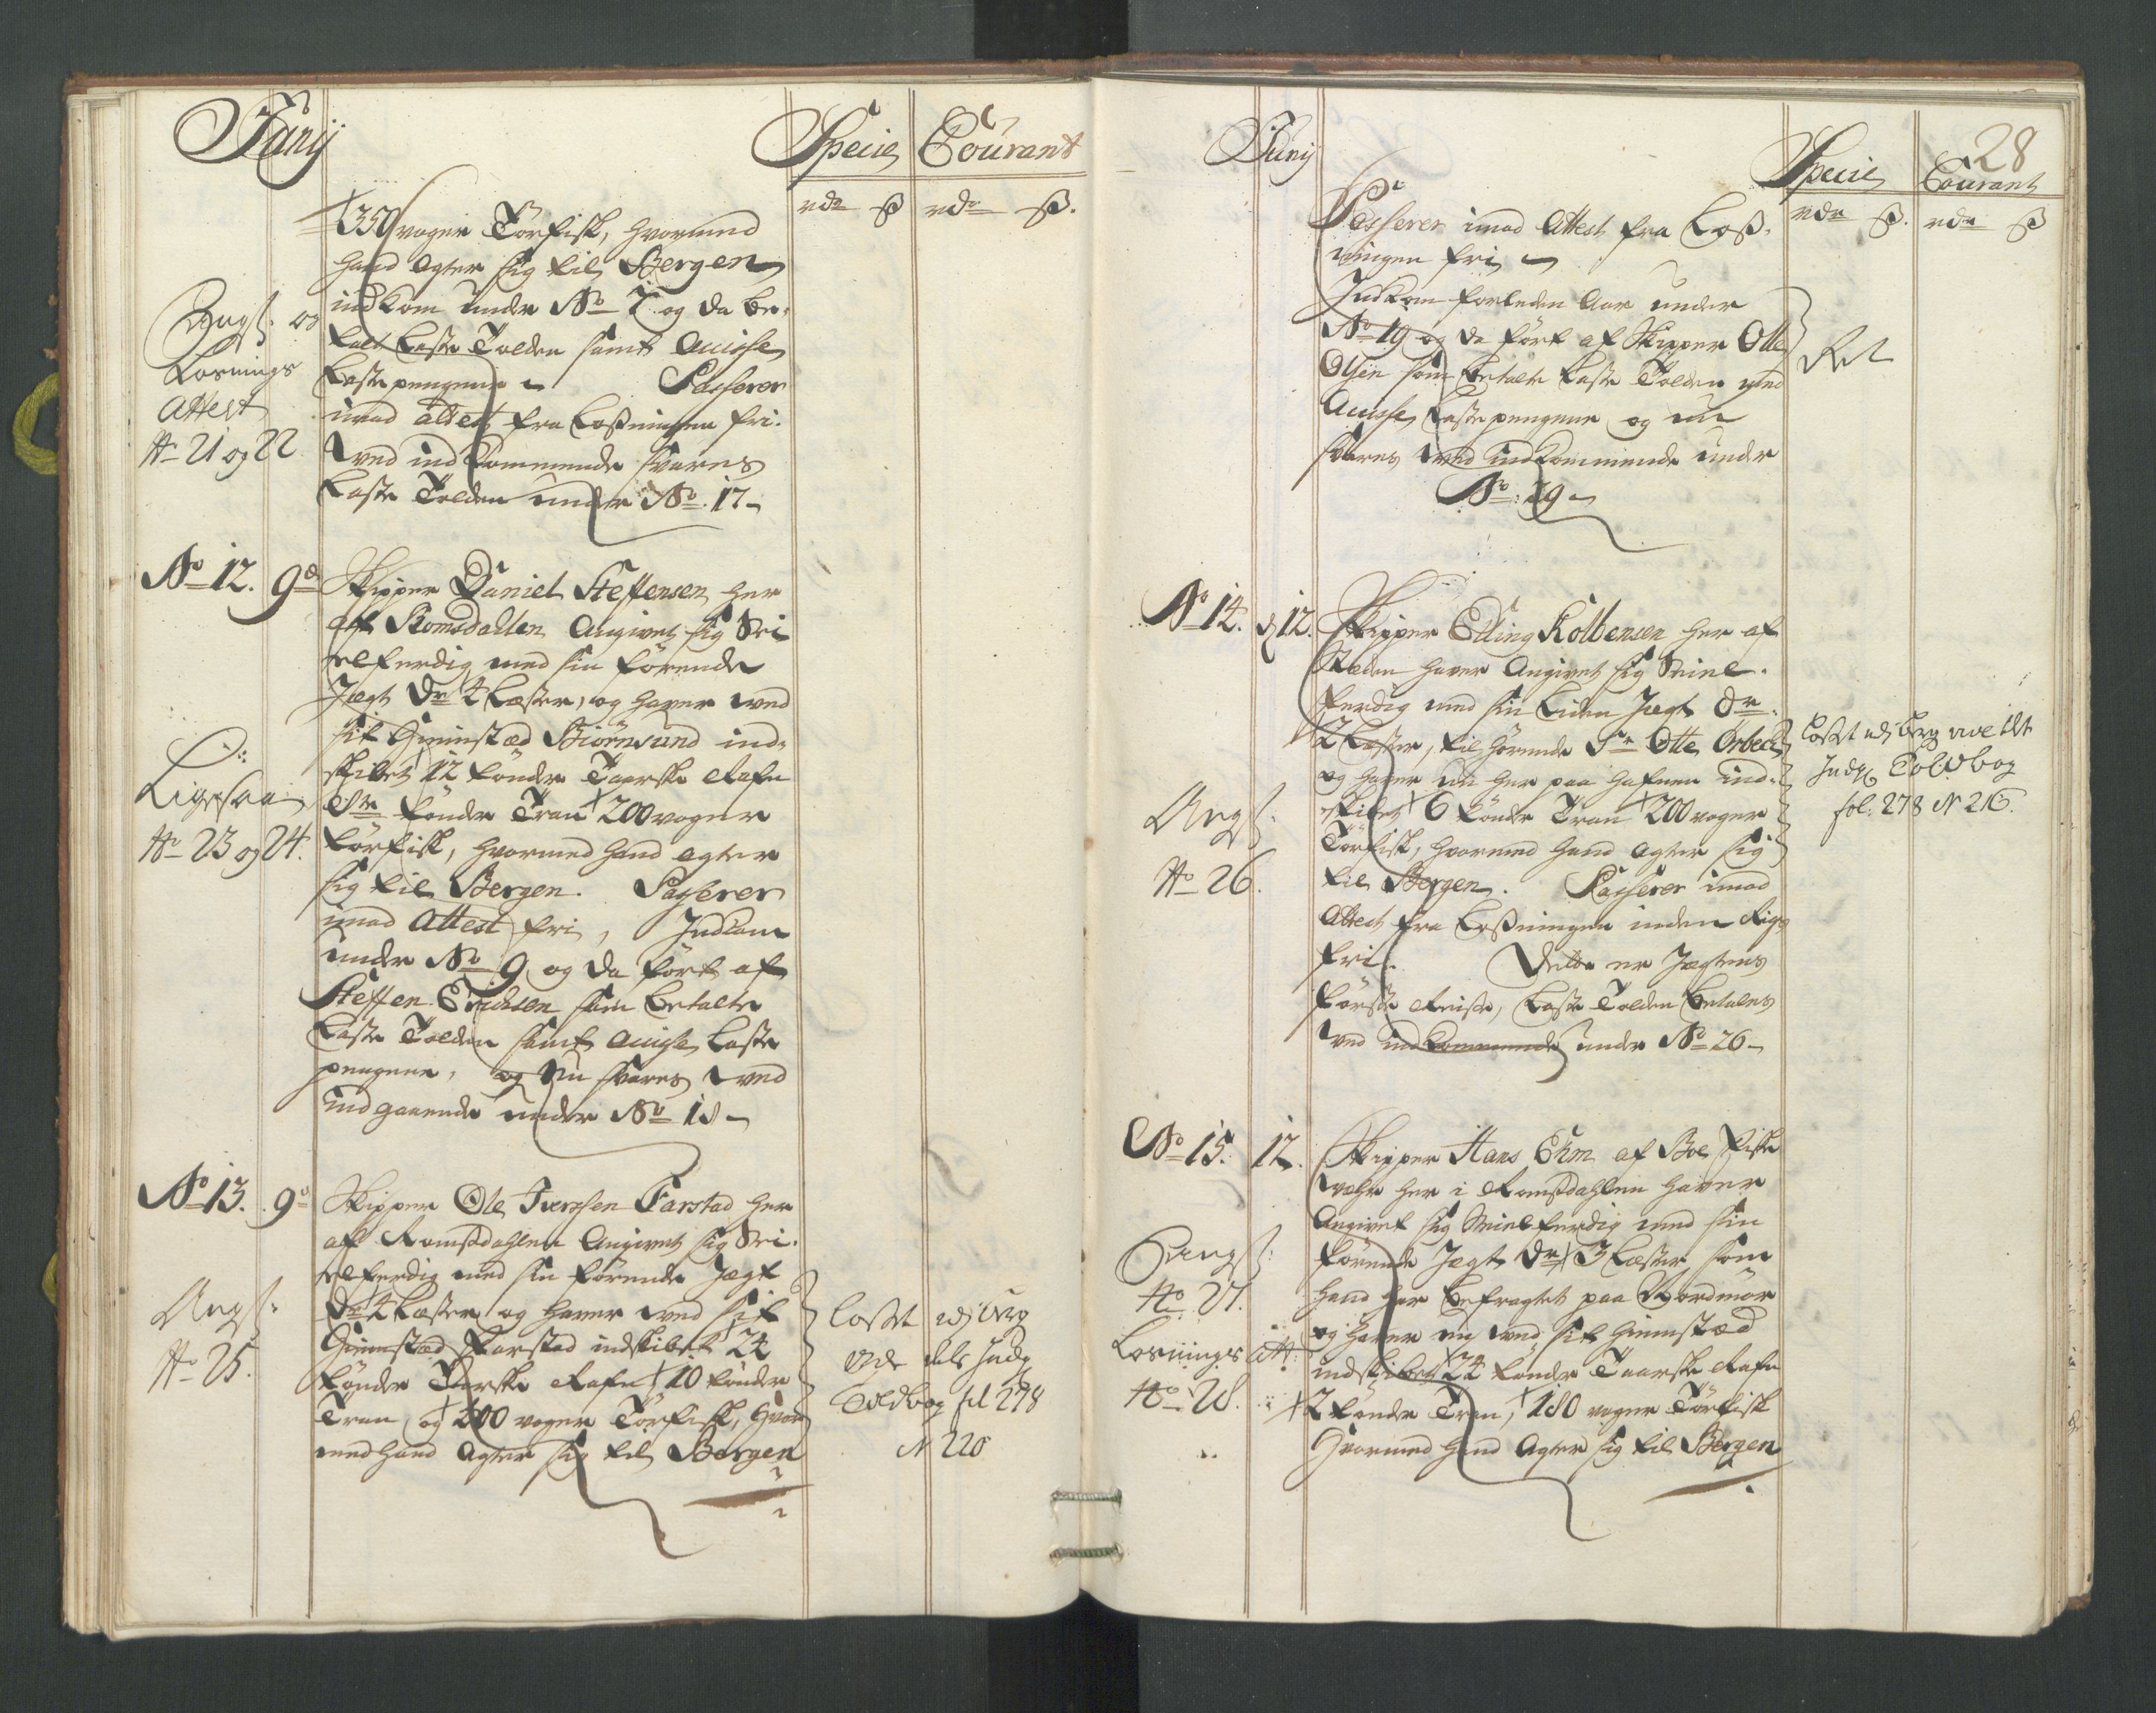 Junij
Specie Courant
rdr ß rdr ß.
350 voger Törfisk, hvormed
hand agter sig til Bergen
indkom under No 7 og da be-
talt Læste Tolden samt Accise
Lastepengene Passerer
imod attest fra Losningen fri.
ved indkommende svares
Læste Tolden under No. 17
Angs: og
Losnings
Attest
No 21 og 22
No 12. 9de Skipper Daniel Steffensen her
aff Romsdahlen Angivet sig Sei
elferdig med sin förende
Jægt dr 4 Læster, og haver ved
sit Hiemstæd Biörnsund ind-
skibet 12 tönder Taarske Rafn
tönder Tran 200 voger
Törfisk, hvormed hand agter
sig til Bergen. Passerer
imod Attest fri, Indkom
under No 9 og da fört af
Steffen Erichsen som betalte
Læste Tolden samt Accise Laste
pengene, og Nu svares ved
indgaaende under No 18
Ligesaa
No 23 og 24.
No 13. 9de Skipper Ole Iverssen Farstad her
af Romsdahlen Angivet sig Sei-
elferdig med sin förende Jægt
dr 4 Læster og haver ved sit
Hiemstæd Farstad indskibet 24
tönder Torske Rafn 10 tönder
Tran, og 200 voger Törfisk, hvor
med hand Agter sig til Bergen
Angs:
No 25.
losset udj Berg
vide dels Indg
Toldbog fol 278
N 220
Junij
28
Specie Courant
rdr ß. rdr ß
Passerer imod Attest fra Loss-
ningen fri
Indkom forleden Aar under
No 19 og da fört af Skipper Otte
Olsen som betalte Læste Tolden med
Accise Lastepengene og nu
svares ved indkommende under
No: 29
Ret
No 14. d 12. Skipper Elling Kolbensen her af
Stæden haver Angivet sig Seiel-
ferdig med sin Liden Jægt dr
2 Læster, tilhörende Sr Otte Orbech
og haver nu her paa Hafnen ind-
skibet 6 tönder Tran 200 voger
Törfisk, hvormed hand agter sig
til Bergen. Passerer imod
Attest fra Losningen inden Rigs
fri. Dette er Jægtens
förste Reise, Læste Tolden betales
ved indkommende under No 26
Angs:
No 26.
Losset udj Berg vide det
Indg Toldbog
fol. 278 N 216.
No 15. 12. Skipper Hans Ehm af Boe Fiske
vehr her i Romsdahlen haver
Angivet sig Seielferdig med sin
förende Jægt dr 3 Læster som
hand har befragtet paa Nordmör
og haver nu ved sit Hiemstæd
indskibet 24 tönder Taarske Rafn
2 tönder Tran, 180 voger Törfisk
Hvormed hand Agter sig til Bergen
Angs:
No 27.
Losnings Att:
No 28.